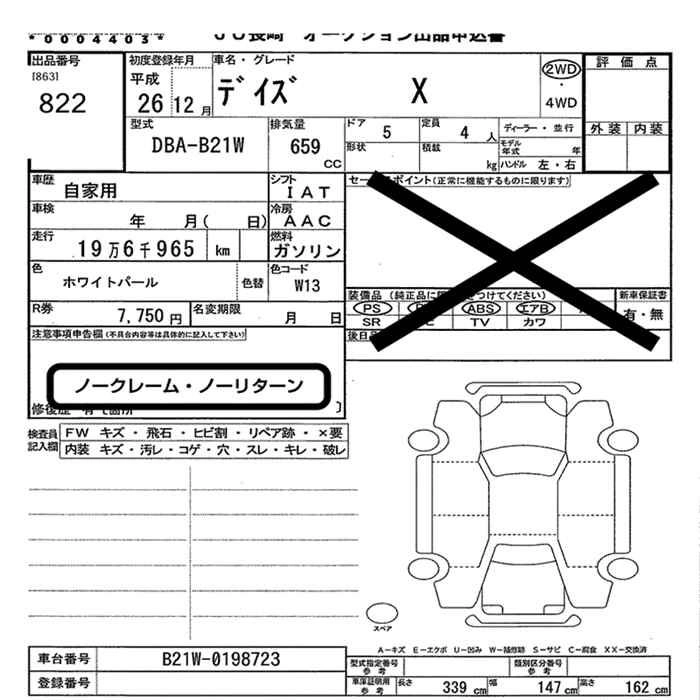 *0004403*
JU長崎 オークション出品申込書
出品番号
[863]
822
初度登録年月
平成
26 12月
車名・グレード
デイズ X
2WD
・
4WD
評価点
外装 内装
型式
DBA-B21W
排気量
659
CC
ドア 5
定員 4人
ディーラー・並行
形状
積載 kg
モデル年式 年
ハンドル 左・右
車歴 自家用
シフト IAT
車検 年 月( 日)
冷房 AAC
走行 19万6千965 km
燃料 ガソリン
色 ホワイトパール
色替
色コード W13
R券 7,750円
名変期限 月 日
セー ポイント(正常に機能するものに限ります)
装備品 (純正品に つけてください)
新車保証書
PS ABS エアB
SR TV カワ
有・無
後日
注意事項申告欄(不具合内容等は具体的に記入して下さい)
ノークレーム・ノーリターン
修復歴 有
検査員記入欄
FW キズ・飛石・ヒビ割・リペア跡・×要
内装 キズ・汚レ・コゲ・穴・スレ・キレ・破レ
スペア
A-キズ E-エクボ U-凹み W-補修跡 S-サビ C-腐食 XX-交換済
車台番号 B21W-0198723
登録番号
型式指定番号 参考
類別区分番号 参考
車庫証明用 参考
長さ 339cm 幅 147cm 高さ 162cm